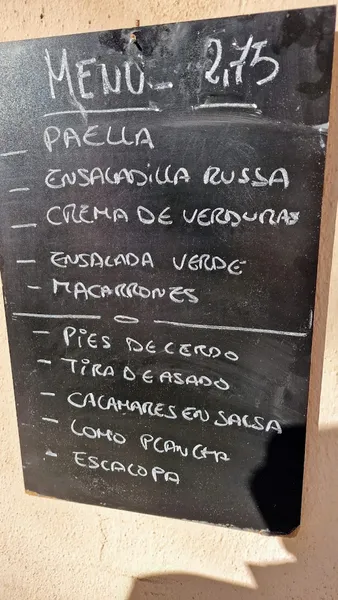 MENÚ - 2,75
- PAELLA
- ENSALADILLA RUSSA
- CREMA DE VERDURAS
- ENSALADA VERDE
- MACARRONES
- PIES DE CERDO
- TIRA DE ASADO
- CALAMARES EN SALSA
- LOMO PLANCHA
- ESCALOPA